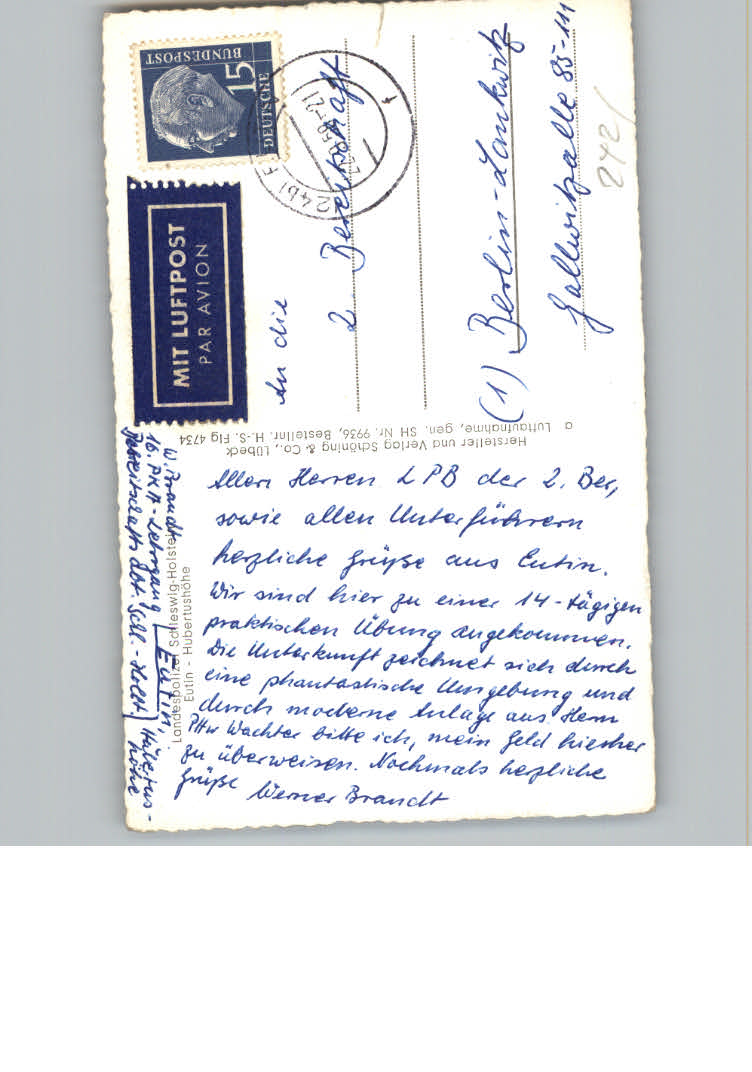 W. Brandt
16. PKA-Lehrgang
Bereitschafts Abt. Schl.-Holst.
Eutin,
Hubertus-
höhe
Landespolizei Schleswig-Holstein
Eutin - Hubertushöhe
Allen Herren LPB der 2. Ber,
sowie allen Unterführern
herzliche Grüße aus Eutin.
Wir sind hier zu einer 14-tägigen
praktischen Übung angekommen.
Die Unterkunft zeichnet sich durch
eine phantastische Umgebung und
durch moderne Anlage aus. Herrn
PHw Wachter bitte ich, mein Geld hierher
zu überweisen. Nochmals herzliche
Grüße
Werner Brandt
Hersteller und Verlag Schöning & Co., Lübeck
a Luftaufnahme, gen. SH Nr. 9936, Bestellnr. H.-S. Flg 4734
MIT LUFTPOST
PAR AVION
DEUTSCHE
BUNDESPOST
15
24b
-21
An die
2. Bereitschaft
(1) Berlin-Lankwitz
Gallwitzallee 85-111
242/